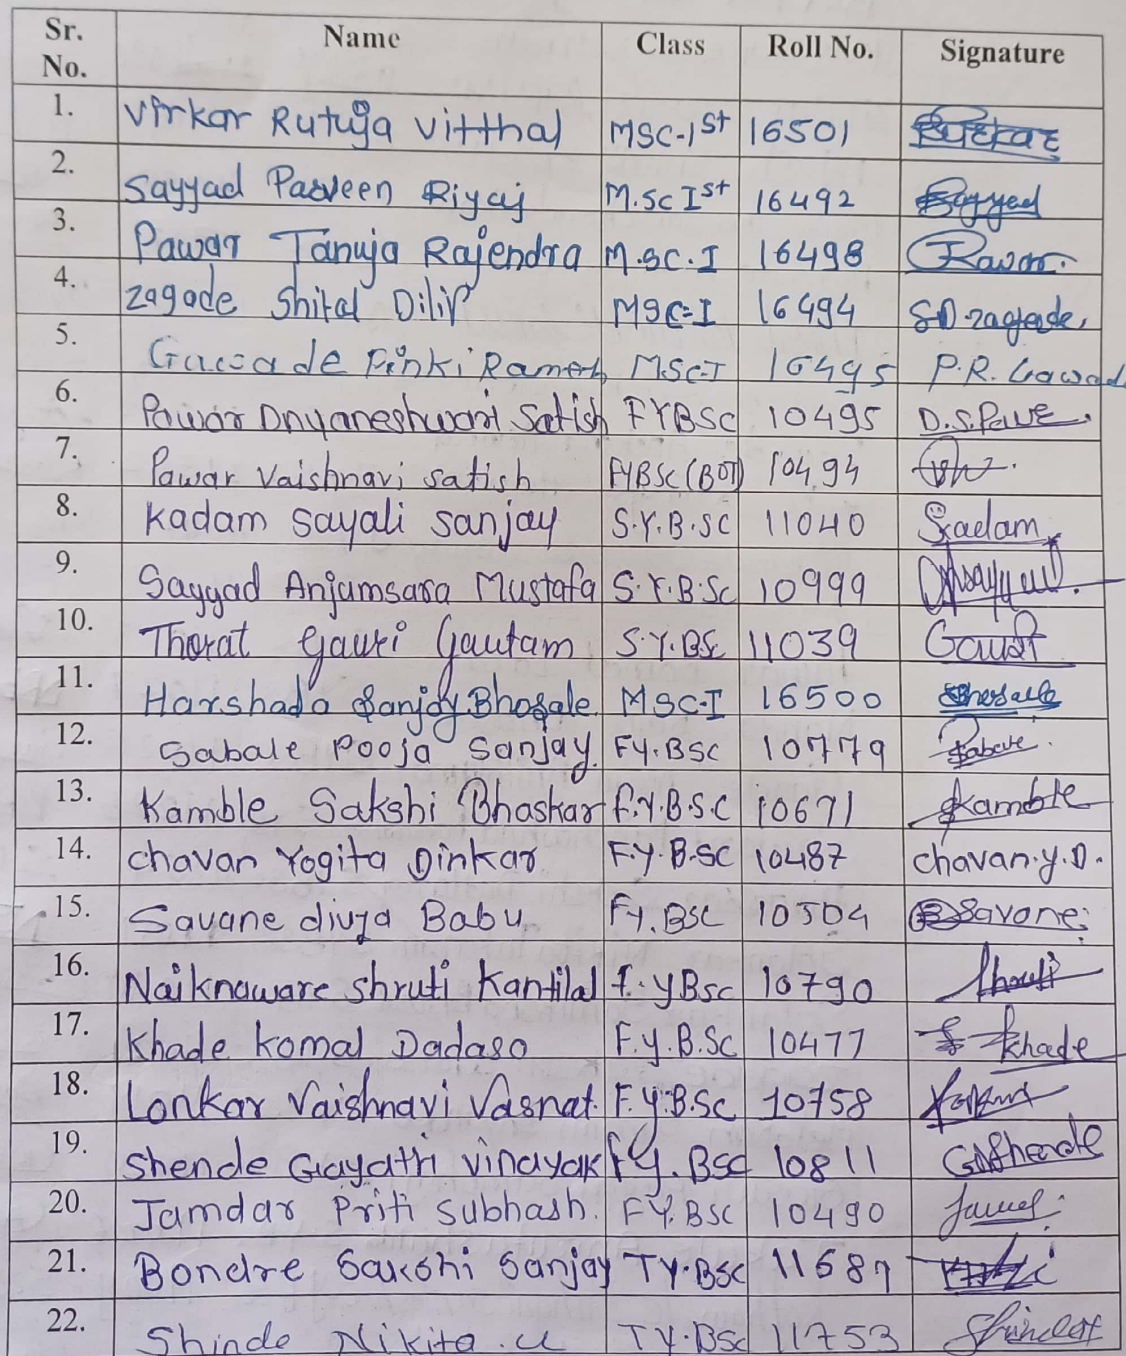 Sr. No. Name Class Roll No. Signature
1. Virkar Rutuja Vitthal MSC-Ist 16501
2. Sayyad Parveen Riyaj M.Sc Ist 16492 Sayyad
3. Pawar Tanuja Rajendra M.SC.I 16498 Pawar.
4. Zagade Shital Dilip MSC-I 16494 SD zagade.
5. Pinki Ramesh M.Sc-I 16495 P.R. Gawade
6. Pawar Dnyaneshwari Satish FYBSC 10495
7. Pawar Vaishnavi Satish FYBSC (BOT) 10494
8. Kadam Sayali Sanjay S.Y.B.SC 11040 Kadam
9. Sayyad Anjumsara Mustafa S.Y.B.Sc 10999
10. Thorat Gauri Gautam S.Y.BSc 11039
11. Harshada Sanjay Bhosale MSC-I 16500 Bhosale
12. Sabale Pooja Sanjay. FY.BSC 10779
13. Kamble Sakshi Bhaskar F.Y.B.S.C 10671 Kamble
14. Chavan Yogita Dinkar F.Y.B.SC 10487 chavan.y.D.
15. Savane divya Babu FY.BSC 10504 Savane
16. Naiknaware shruti Kantilal F.YBsc 10790
17. Khade komal Dadaso F.Y.B.Sc 10477 khade
18. Lonkar Vaishnavi Vasnat. F.Y.B.Sc 10758
19. Shende Gayatri Vinayak FY.BSC 10811 Shende
20. Jamdar Priti Subhash. FY.BSC 10490
21. Bondre Sakshi Sanjay TY.BSC 11687
22. Shinde Nikita.U TY.BSC 11753